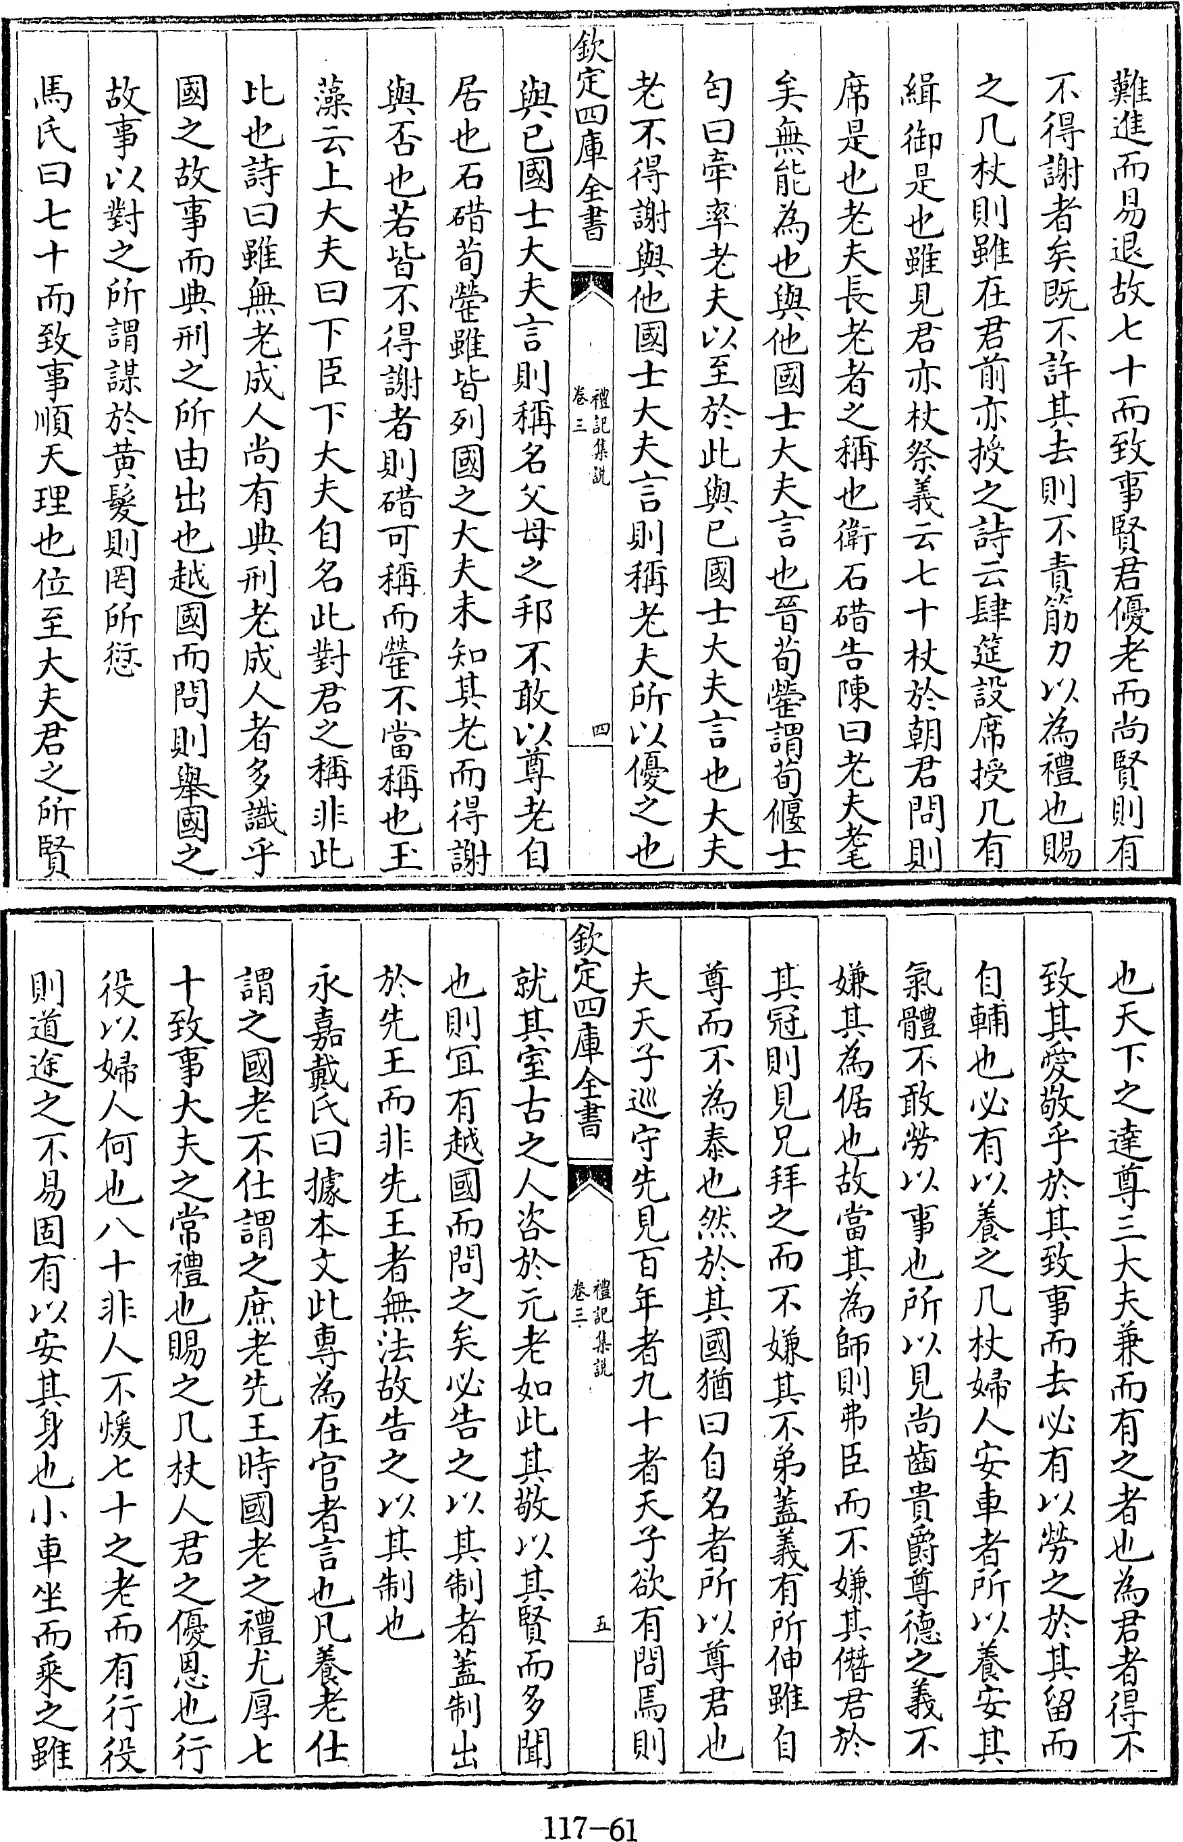 難進而易退故七十而致事賢君優老而尚賢則有
不得謝者矣既不許其去則不責筋力以為禮也賜
之几杖則雖在君前亦授之詩云肆筵設席授几有
緝御是也雖見君亦杖祭義云七十杖於朝君問則
席是也老夫長老者之稱也衛石碏告陳曰老夫耄
矣無能為也與他國士大夫言也晉荀罃謂荀偃士
匄曰牽率老夫以至於此與已國士大夫言也大夫
老不得謝與他國士大夫言則稱老夫所以優之也
欽定四庫全書
禮記集說
卷三
四
與已國士大夫言則稱名父母之邦不敢以尊老自
居也石碏荀罃雖皆列國之大夫未知其老而得謝
與否也若皆不得謝者則碏可稱而罃不當稱也玉
藻云上大夫曰下臣下大夫自名此對君之稱非此
比也詩曰雖無老成人尚有典刑老成人者多識乎
國之故事而典刑之所由出也越國而問則舉國之
故事以對之所謂謀於黄髮則罔所愆
馬氏曰七十而致事順天理也位至大夫君之所賢
也天下之達尊三大夫兼而有之者也為君者得不
致其愛敬乎於其致事而去必有以勞之於其留而
自輔也必有以養之几杖婦人安車者所以養安其
氣體不敢勞以事也所以見尚齒貴爵尊德之義不
嫌其為倨也故當其為師則弗臣而不嫌其僭君於
其冠則見兄拜之而不嫌其不弟蓋義有所伸雖自
尊而不為泰也然於其國猶曰自名者所以尊君也
夫天子巡守先見百年者九十者天子欲有問焉則
欽定四庫全書
禮記集說
卷三
五
就其室古之人咨於元老如此其敬以其賢而多聞
也則宜有越國而問之矣必告之以其制者蓋制出
於先王而非先王者無法故告之以其制也
永嘉戴氏曰據本文此專為在官者言也凡養老仕
謂之國老不仕謂之庶老先王時國老之禮尤厚七
十致事大夫之常禮也賜之几杖人君之優恩也行
役以婦人何也八十非人不煖七十之老而有行役
則道途之不易固有以安其身也小車坐而乘之雖
117-61